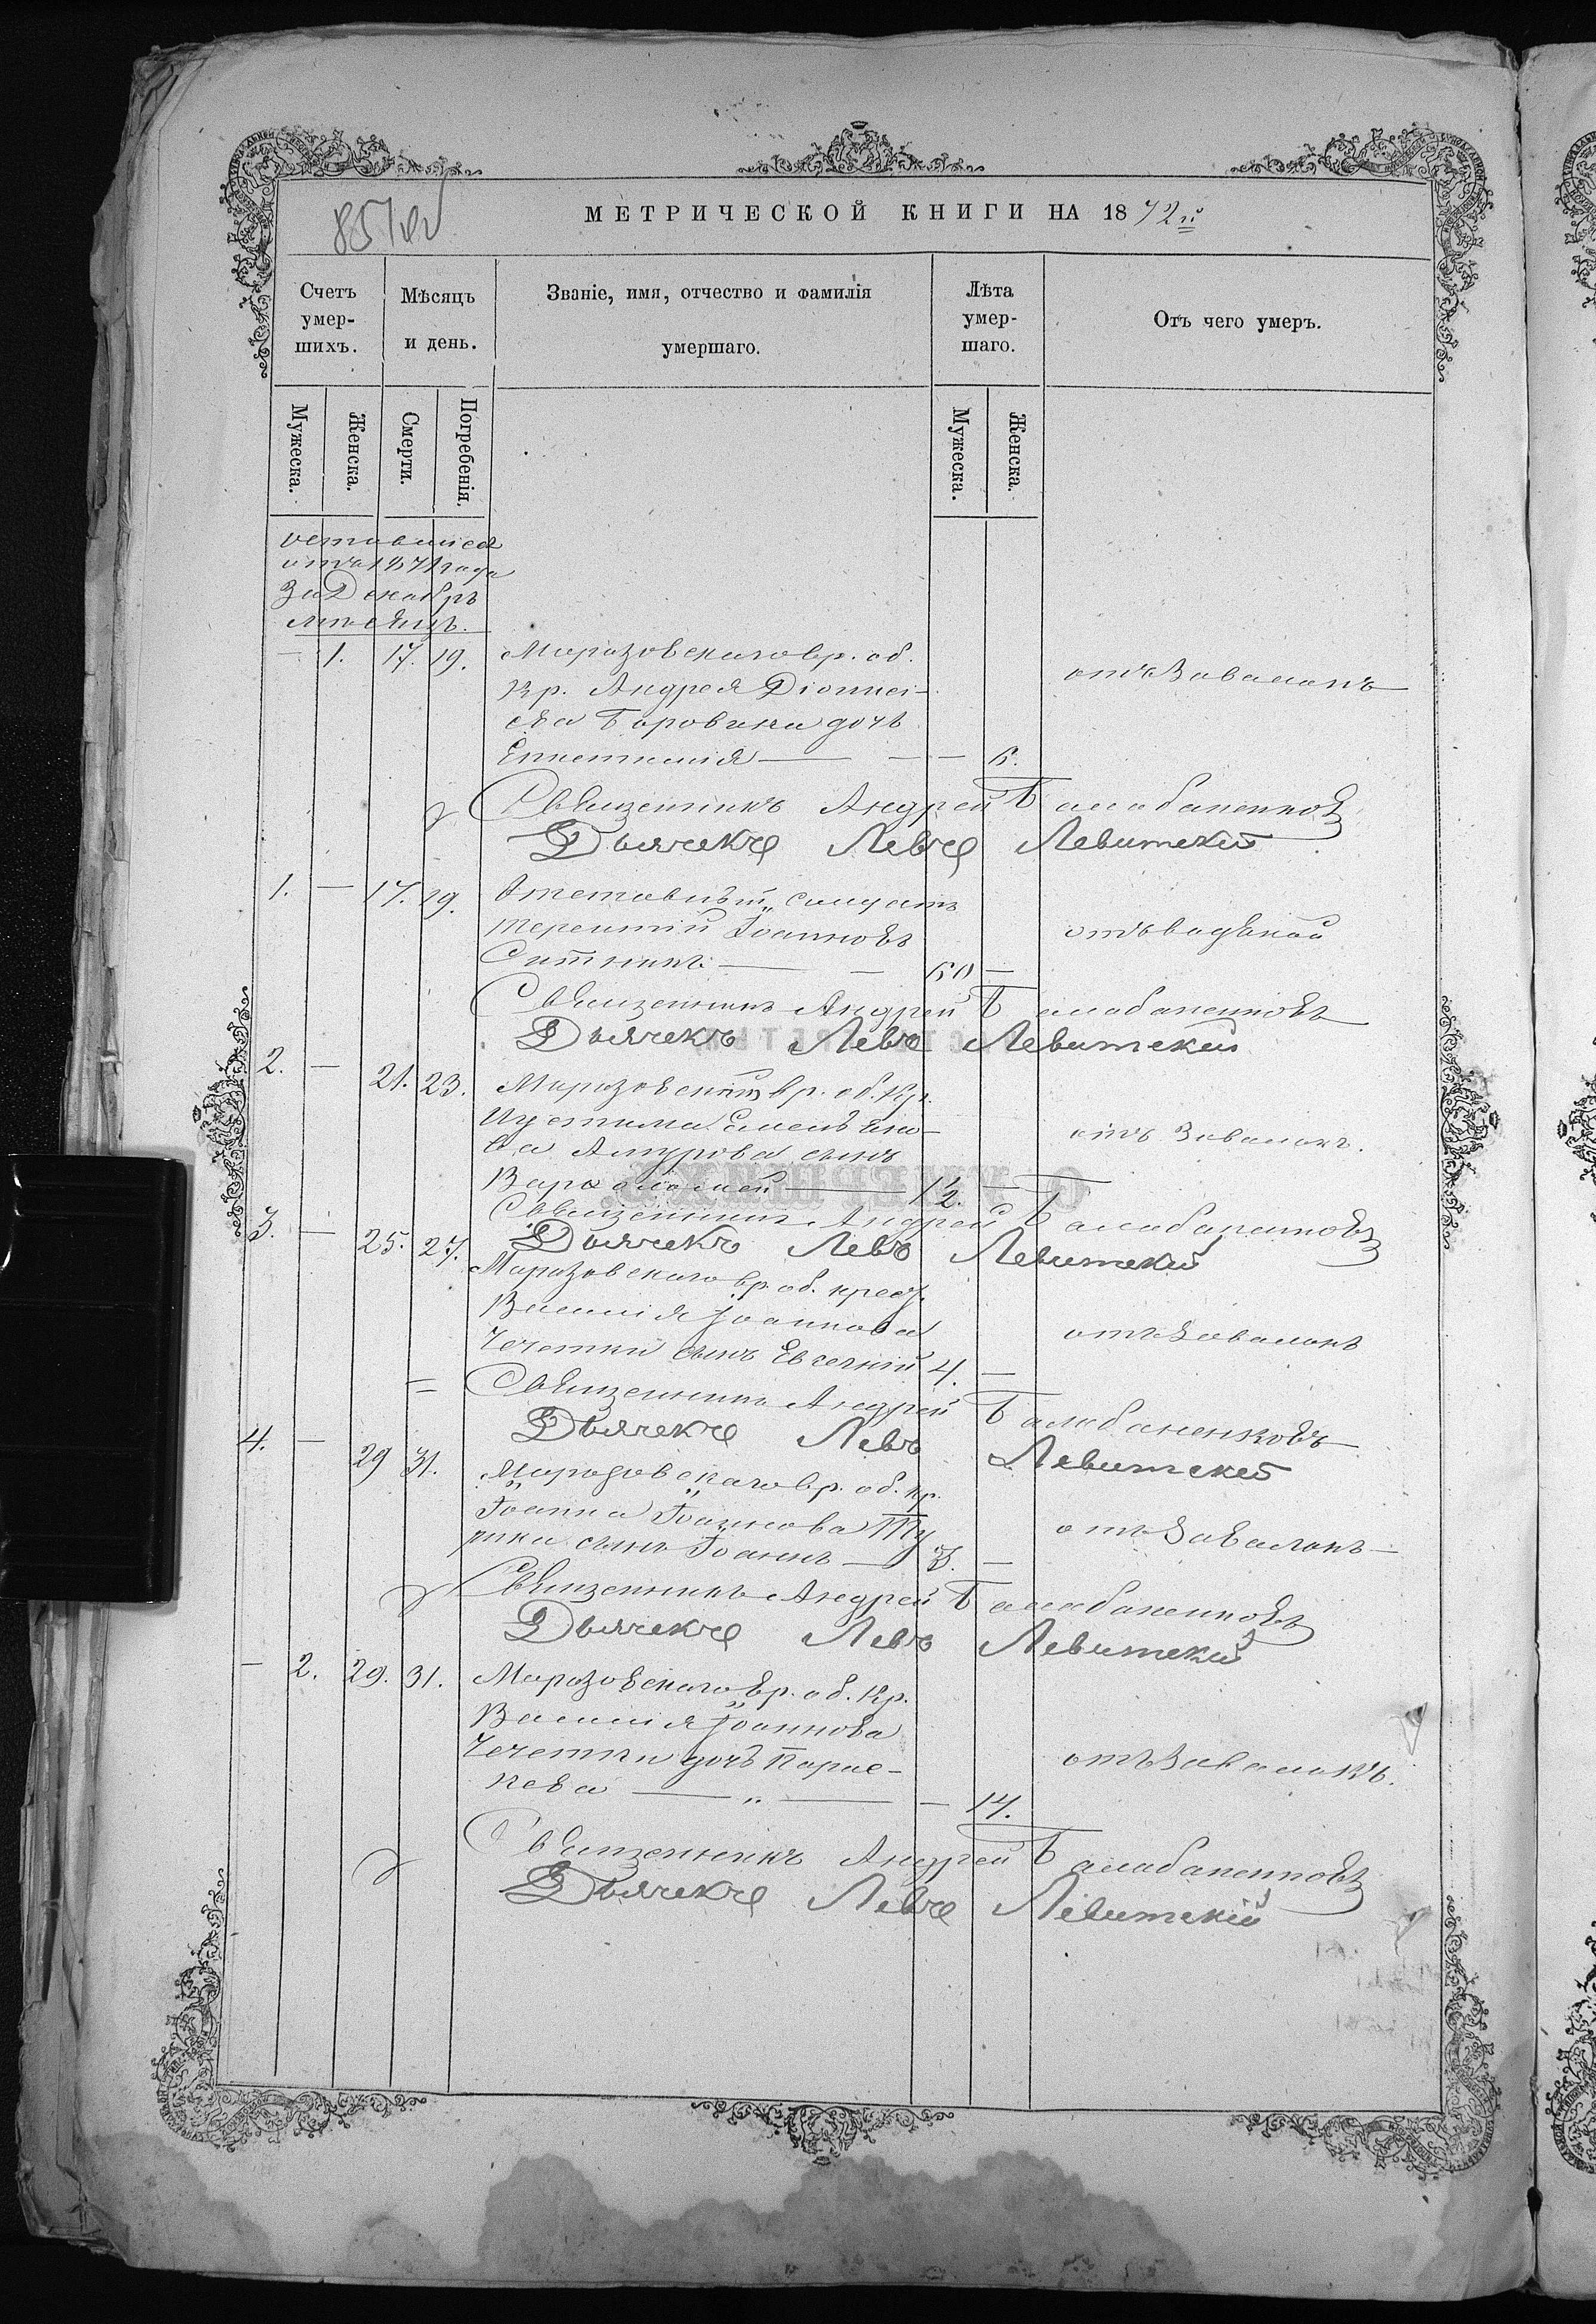 851 об
МЕТРИЧЕСКОЙ КНИГИ НА 1872й
Счетъ умер- шихъ.
Мѣсяцъ и день.
Званіе, имя, отчество и фамилія умершаго.
Лѣта умер- шаго.
Отъ чего умеръ.
Мужеска.
Женска.
Смерти.
Погребенія.
Мужеска.
Женска.
оставшiеся
отъ 1871 года
За Декабрь
мѣсяцъ.
— 1. 17. 19. Марозовскаго вр. об.
Кр. Андрея Дiонисi- отъ Завалокъ
ева Боровика дочь
— 6.
Священникъ Андрей Балабаненковъ
Дьячекъ Левъ Левитскiй
1. — 17. 19. Отставный солдатъ
Терентiй Іоанновъ отъ водяной
Ситникъ — 60 —
Священникъ Андрей Балабаненковъ
Дьячекъ Левъ Левитскiй
2. — 21. 23. Марозовскаго вр. об. Кр.
Іустима отъ Завалокъ.
ва сынъ
Варѳоломей — 12. —
Священникъ Андрей Балабаненковъ
3. — 25. 27. Дьячекъ Левъ Левитскiй
Марозовскаго вр. об. крест.
Василiя Іоаннова отъ Завалокъ
Чечетки сынъ Евгенiй 4. —
Священникъ Андрей Балабаненковъ
Дьячекъ Левъ Левитскiй
4. — 29 31. Марозовскаго вр. об. кр.
Іоанна Іоаннова Ту отъ Завалокъ
рика сынъ Іоаннъ — 3. —
Священникъ Андрей Балабаненковъ
Дьячекъ Левъ Левитскiй
— 2. 29. 31. Марозовскаго вр. об. Кр.
Василiя Іоаннова
Чечетки дочь Парас- отъ Завалокъ.
кева — „ — — 14.
Священникъ Андрей Балабаненковъ
Дьячекъ Левъ Левитскiй